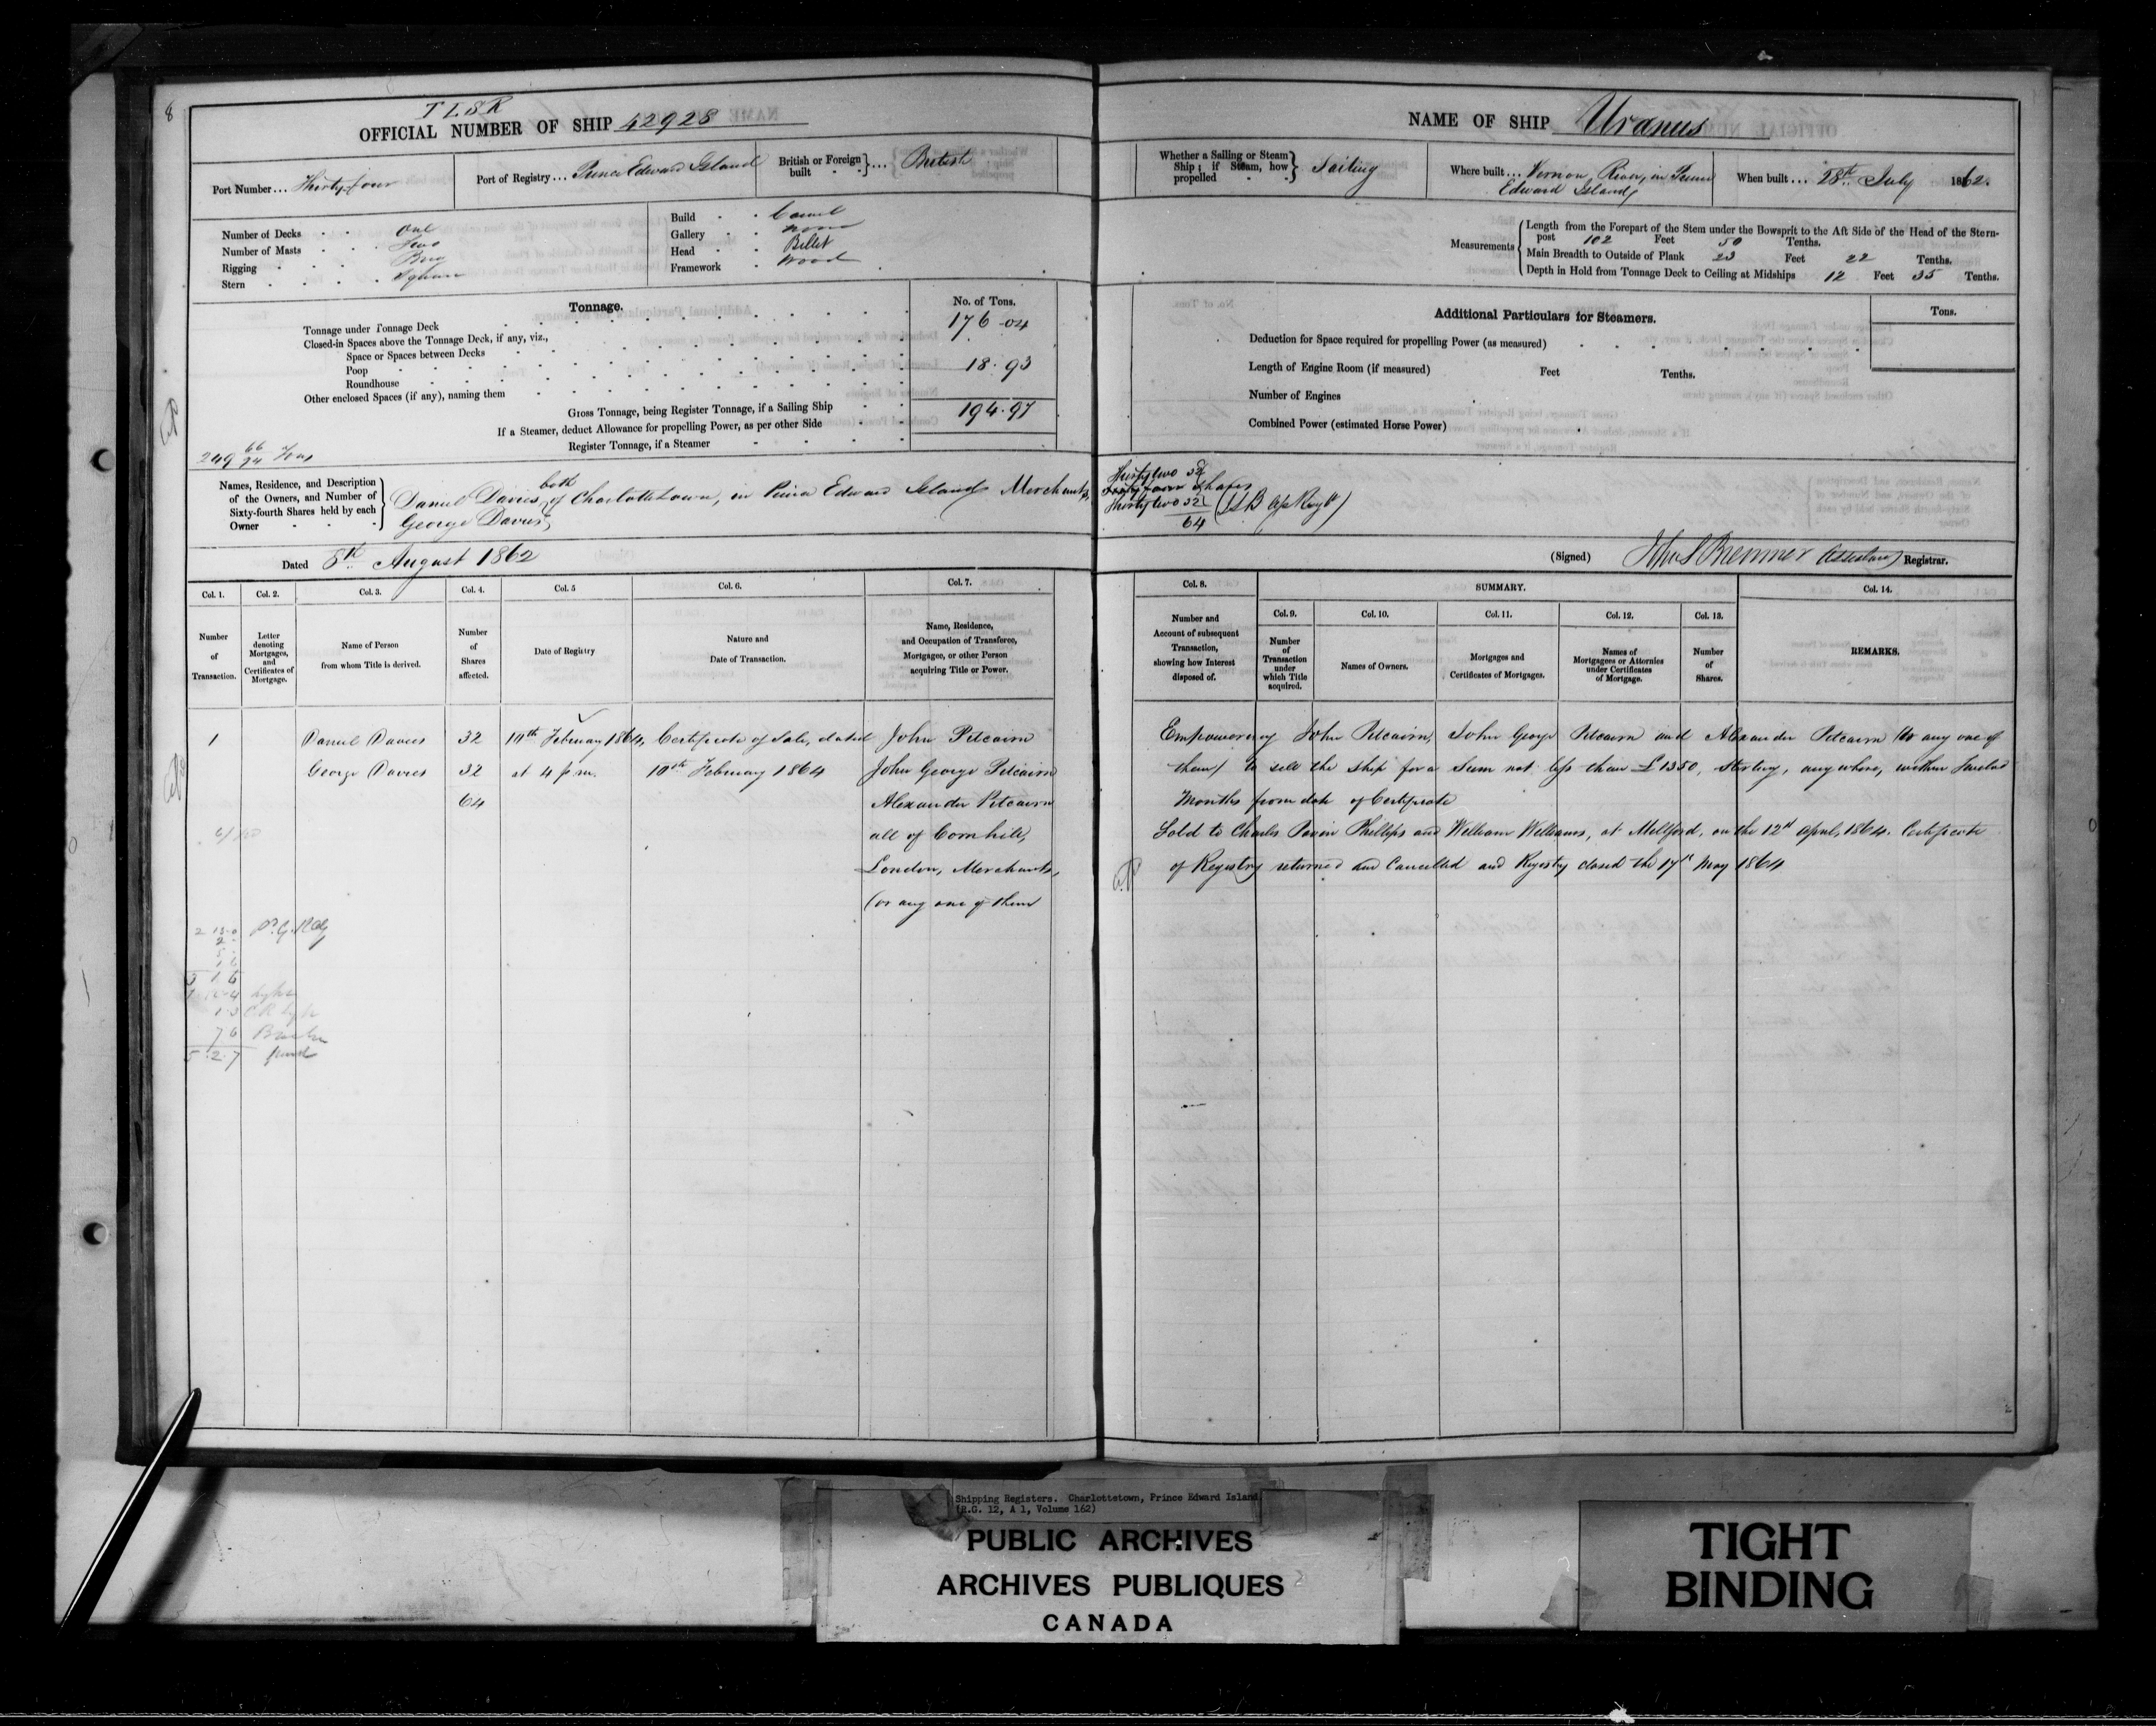 8
T L S R
OFFICIAL NUMBER OF SHIP 42928
Port Number... Thirty four
Port of Registry... Prince Edward Island
British or Foreign built } ... British
Number of Decks One
Number of Masts Two
Rigging Brig
Stern Square
Build Carvel
Gallery None
Head Billet
Framework Wood
Tonnage.
No. of Tons.
Tonnage under Tonnage Deck 176.04
Closed-in Spaces above the Tonnage Deck, if any, viz.,
Space or Spaces between Decks
Poop 18.93
Roundhouse
Other enclosed Spaces (if any), naming them
Gross Tonnage, being Register Tonnage, if a Sailing Ship 194.97
If a Steamer, deduct Allowance for propelling Power, as per other Side
Register Tonnage, if a Steamer
249 66/94 Tons
Names, Residence, and Description of the Owners, and Number of Sixty-fourth Shares held by each Owner
Daniel Davies, both of Charlottetown, in Prince Edward Island Merchants,
George Davies,
Dated 8th August 1862
Col. 1. Col. 2. Col. 3. Col. 4. Col. 5 Col. 6. Col. 7.
Number of Transaction.
Letter denoting Mortgages, and Certificates of Mortgage.
Name of Person from whom Title is derived.
Number of Shares affected.
Date of Registry
Nature and Date of Transaction.
Name, Residence, and Occupation of Transferee, Mortgagee, or other Person acquiring Title or Power.
1 Daniel Davies 32 10th February 1864, Certificate of Sale, dated John Pitcairn
George Davies 32 at 4 p.m. 10th February 1864 John George Pitcairn
64 Alexander Pitcairn
all of Cornhill,
London, Merchants,
(or any one of them
2 13 0
2
1 6
7 6
5.2.7
NAME OF SHIP Uranus
Whether a Sailing or Steam Ship; if Steam, how propelled } Sailing
Where built... Vernon, River, in Prince
Edward Island,
When built... 28th July 1862.
Measurements
Length from the Forepart of the Stem under the Bowsprit to the Aft Side of the Head of the Stern-
post 102 Feet 50 Tenths.
Main Breadth to Outside of Plank 23 Feet 22 Tenths.
Depth in Hold from Tonnage Deck to Ceiling at Midships 12 Feet 35 Tenths.
Additional Particulars for Steamers.
Tons.
Deduction for Space required for propelling Power (as measured)
Length of Engine Room (if measured) Feet Tenths.
Number of Engines
Combined Power (estimated Horse Power)
Thirty two 32
Shares
Thirty two 32
64
(Signed) John S Bremner (Assistant) Registrar.
Col. 8. SUMMARY. Col. 14.
Col. 9. Col. 10. Col. 11. Col. 12. Col. 13.
Number and Account of subsequent Transaction, showing how Interest disposed of.
Number of Transaction under which Title acquired.
Names of Owners.
Mortgages and Certificates of Mortgages.
Names of Mortgagees or Attornies under Certificates of Mortgage.
Number of Shares.
REMARKS.
Empowering John Pitcairn, John George Pitcairn and Alexander Pitcairn (or any one of
them) to sell the Ship for a Sum not less than £1350, Sterling, any where, within Twelve
Months from date of Certificate
Sold to Charles Phillips and William Williams, at Millford, on the 12th April, 1864. Certificate
of Registry returned and Cancelled and Registry closed the 17th May 1864
Shipping Registers. Charlottetown, Prince Edward Island
(R.G. 12, A 1, Volume 162)
PUBLIC ARCHIVES
ARCHIVES PUBLIQUES
CANADA
TIGHT
BINDING